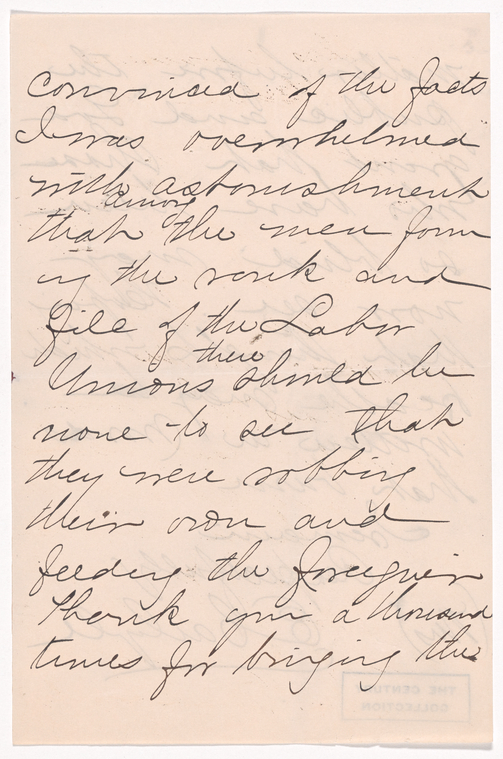 convinced of the facts
I was overwhelmed
with astonishment
that among the men form
ing the rank and
file of the Labor
Unions there should be
none to see that
they were robbing
their own and
feeding the foreigner
Thank you a thousand
times for bringing the
THE CENTURY
COLLECTION